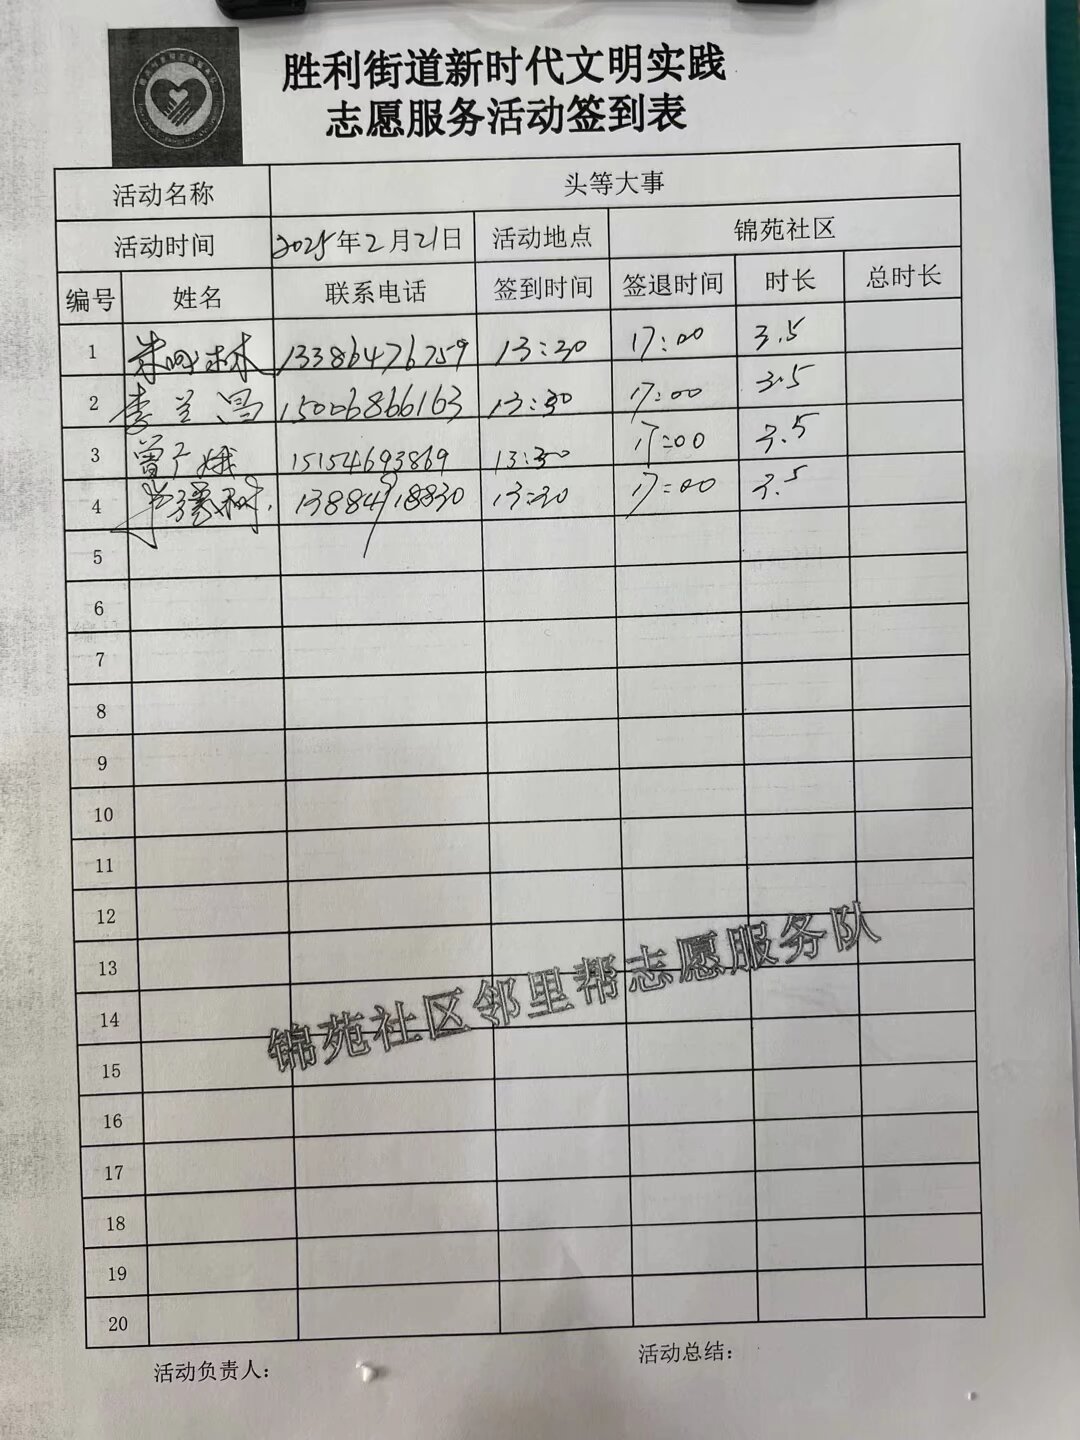 胜利街道新时代文明实践
志愿服务活动签到表
活动名称 头等大事
活动时间 2025年2月21日 活动地点 锦苑社区
编号 姓名 联系电话 签到时间 签退时间 时长 总时长
1 13386476759 13:30 17:00 3.5
2 李兰昌 15006866163 13:30 17:00 3.5
3 曾广娥 15154693869 13:30 17:00 3.5
4 13:30 17:00 3.5
5
6
7
8
9
10
11
12
13
14
15
16
17
18
19
20
锦苑社区邻里帮志愿服务队
活动负责人： 活动总结：